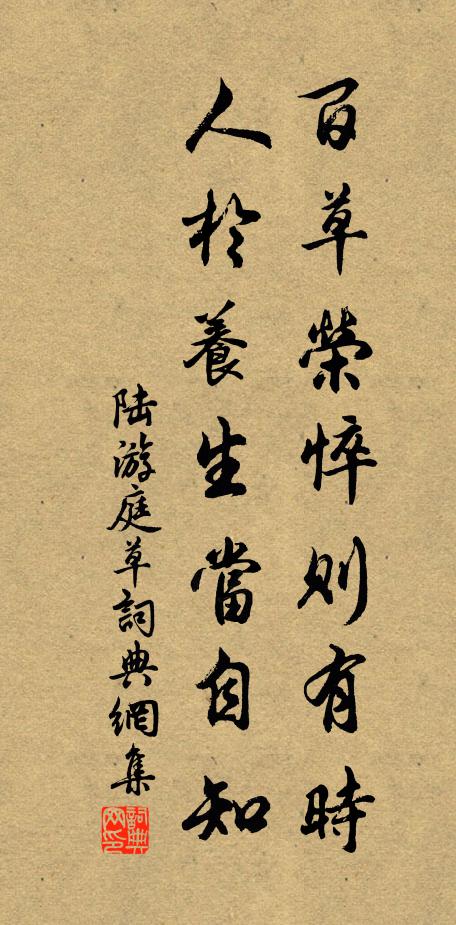 百草榮悴則有時
人於養生當自知
陆游庭草詞典網集
詞典網印